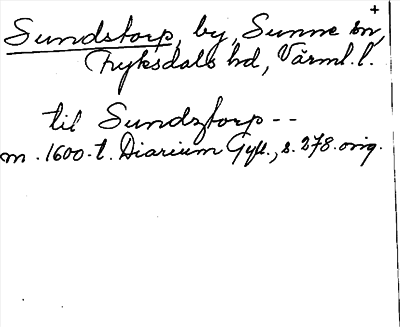 +
Sundstorp, by, Sunne sn,
Fryksdals hd, Värml. l.
til Sundztorp --
m. 1600-t. Diarium Gyll., s. 278. orig.